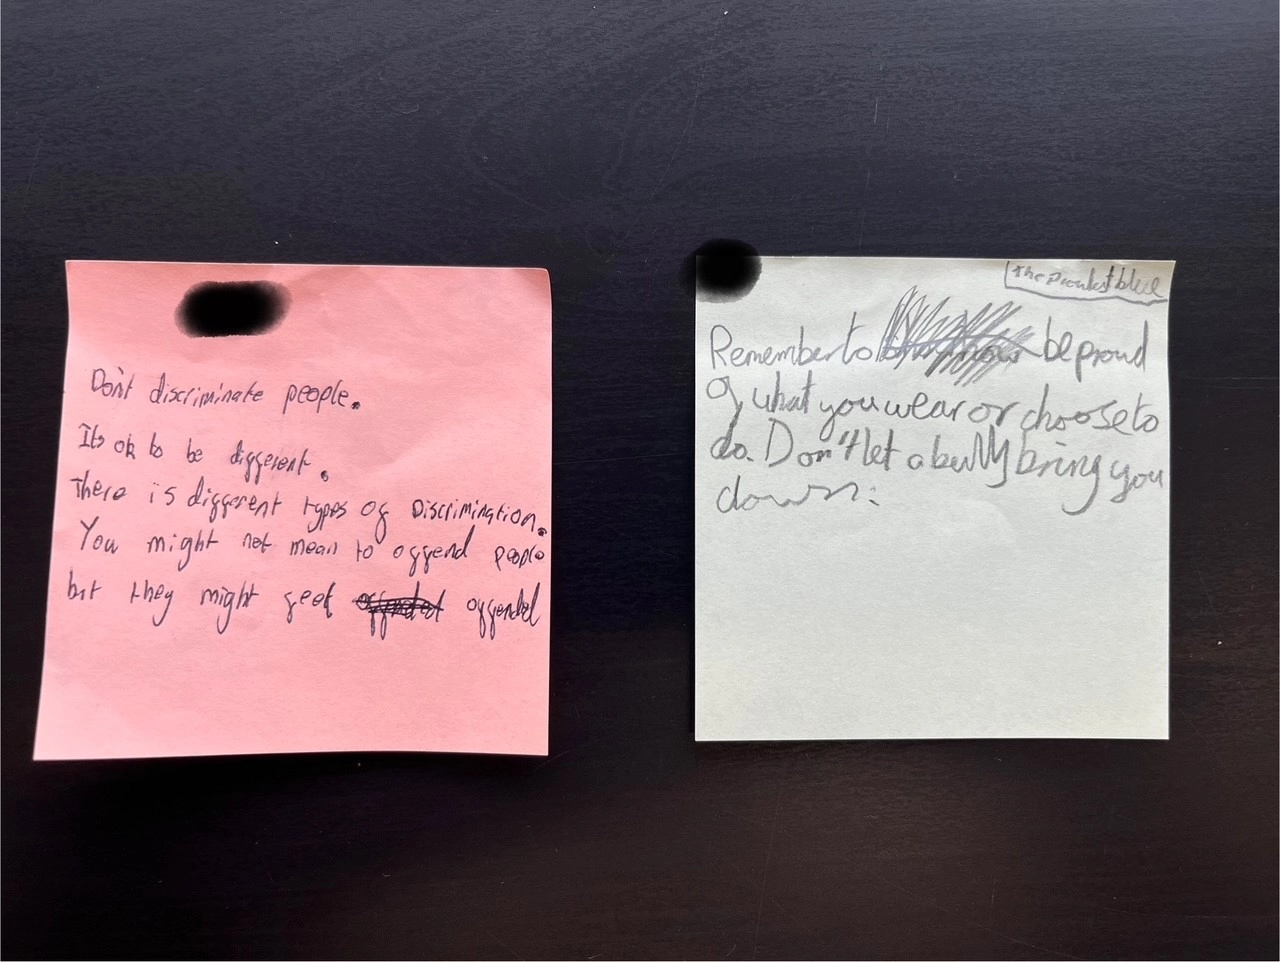 Don't discriminate people.
Its ok to be different.
There is different types of Discrimination.
You might not mean to offend people
but they might feel offended offended
The Proudest blue
Remember to be proud
of what you wear or choose to
do. Don't let a bully bring you
down.